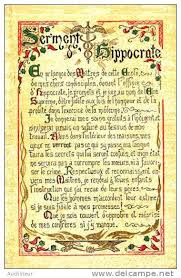 Serment
d'Hippocrate
En présence des Maîtres de cette École,
de mes chers condisciples, devant l'effigie
d'Hippocrate, je promets et je jure au nom de l'Être
Suprême, d'être fidèle aux lois de l'honneur et de la
probité dans l'exercice de la médecine.
Je donnerai mes soins gratuits à l'indigent et
n'exigerai jamais un salaire au dessus de mon
travail. Admis dans l'intérieur des maisons, mes
yeux ne verront pas ce qui s'y passe, ma langue
taira les secrets qui me seront confiés, et mon état
ne servira pas à corrompre les mœurs ni à favoriser
le crime. Respectueux et reconnaissant
envers mes Maîtres, je rendrai à leurs enfants
l'instruction que j'ai reçue de leurs pères.
Que les hommes m'accordent leur estime
si je suis fidèle à mes promesses.
Que je sois couvert d'opprobre et méprisé
de mes confrères, si j'y manque.
© Auditeur
delcampe.net